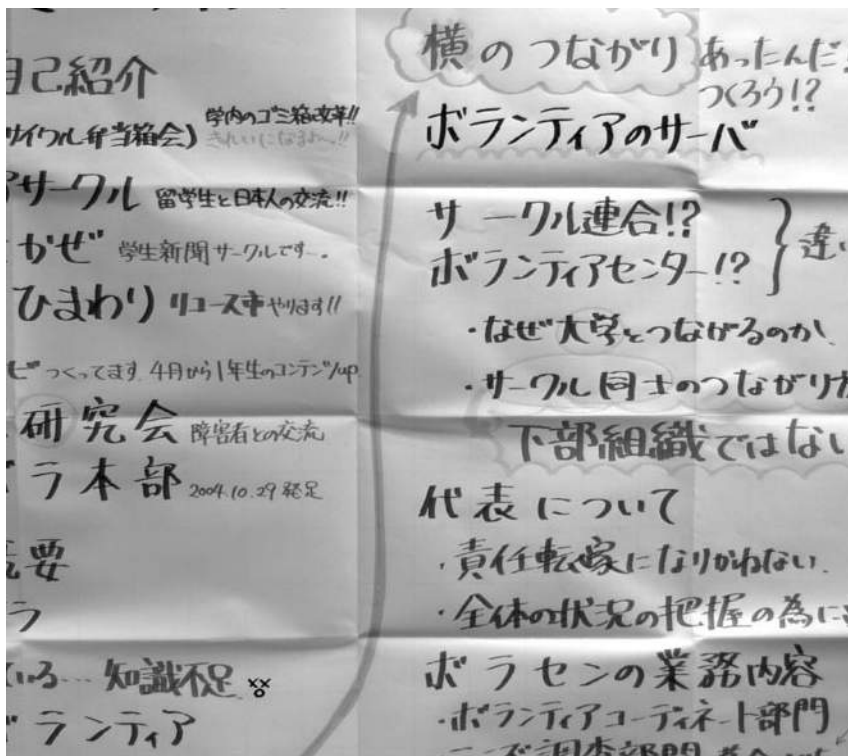 自己紹介
サイクル弁当箱会) 学内のゴミ箱改革!!
きれいになるよ〜!!
サークル 留学生と日本人の交流!!
かぜ 学生新聞サークルです。
ひまわり リユース市やります!!
つくってます. 4月から1年生のコンテンツup
研究会 障害者との交流
ラ本部 2004.10.29 発足
要
ラ
いる… 知識不足
ランティア
横のつながり あったんだ!
つくろう!?
ボランティアのサーバ
サークル連合!?
ボランティアセンター!?
違い
・なぜ大学とつながるのか
・サークル同士のつながり方
下部組織ではない
代表について
・責任転嫁になりかねない.
・全体の状況の把握の為に
ボラセンの業務内容
・ボランティアコーディネート部門
ニーズ調査部門